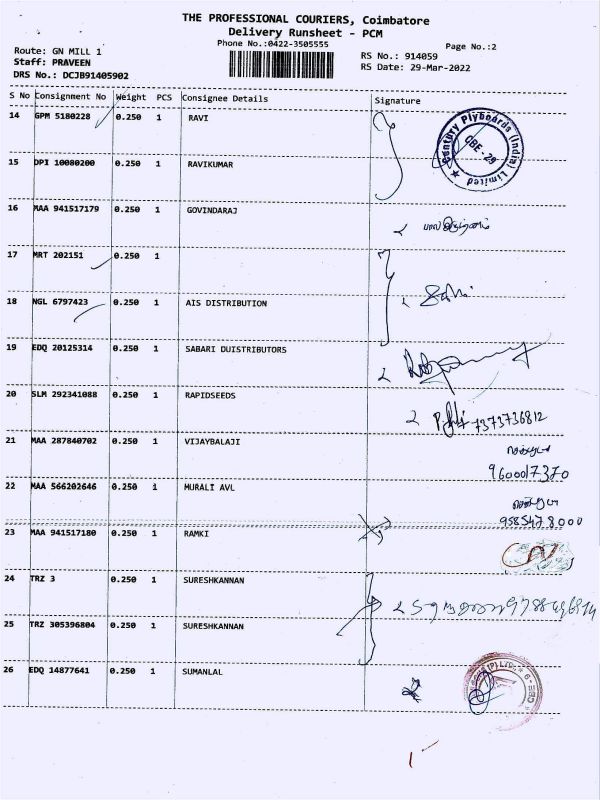 THE PROFESSIONAL COURIERS, Coimbatore
Delivery Runsheet - PCM
Phone No.:0422-3505555
Page No.:2
Route: GN MILL 1
RS No.: 914059
Staff: PRAVEEN
RS Date: 29-Mar-2022
DRS No.: DCJB91405902
S No Consignment No Weight PCS Consignee Details Signature
14 GPM 5180228 0.250 1 RAVI
Century Plyboards (India) Limited
CBE - 29
15 DPI 10080200 0.250 1 RAVIKUMAR
16 MAA 941517179 0.250 1 GOVINDARAJ
17 MRT 202151 0.250 1
18 NGL 6797423 0.250 1 AIS DISTRIBUTION
19 EDQ 20125314 0.250 1 SABARI DUISTRIBUTORS
20 SLM 292341088 0.250 1 RAPIDSEEDS
7373736812
21 MAA 287840702 0.250 1 VIJAYBALAJI
9600017370
22 MAA 566202646 0.250 1 MURALI AVL
9585478000
23 MAA 941517180 0.250 1 RAMKI
24 TRZ 3 0.250 1 SURESHKANNAN
25 TRZ 305396804 0.250 1 SURESHKANNAN
26 EDQ 14877641 0.250 1 SUMANLAL